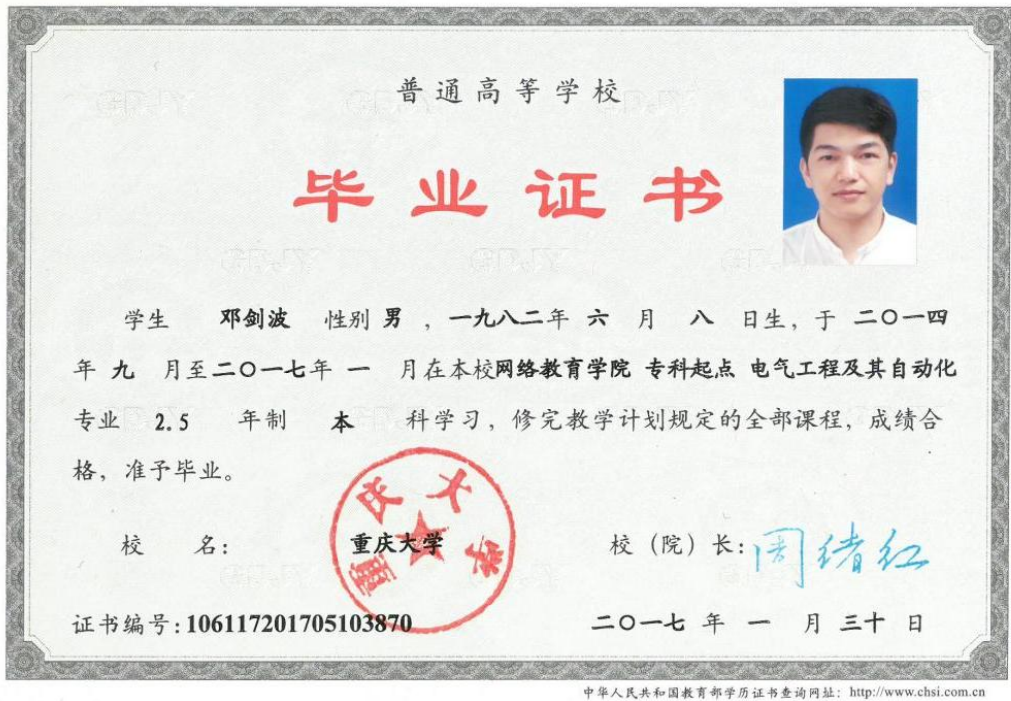 普通高等学校
毕业证书
学生 邓剑波 性别 男 ，一九八二年 六 月 八 日生，于 二〇一四
年 九 月至二〇一七年 一 月在本校网络教育学院 专科起点 电气工程及其自动化
专业 2.5 年制 本 科学习，修完教学计划规定的全部课程，成绩合
格，准予毕业。
校 名： 重庆大学 校（院）长：周绪红
重庆大学
证书编号：106117201705103870 二〇一七 年 一 月 三十 日
中华人民共和国教育部学历证书查询网址：http://www.chsi.com.cn